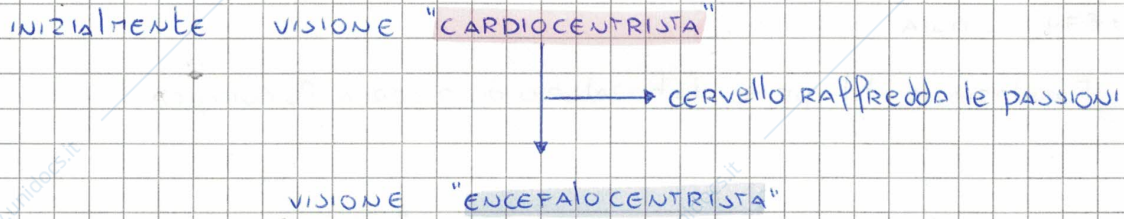 INIZIALMENTE VISIONE "CARDIOCENTRISTA"
CERVELLO RAFFREDDA le PASSIONI
VISIONE "ENCEFALOCENTRISTA"
unidocs.it